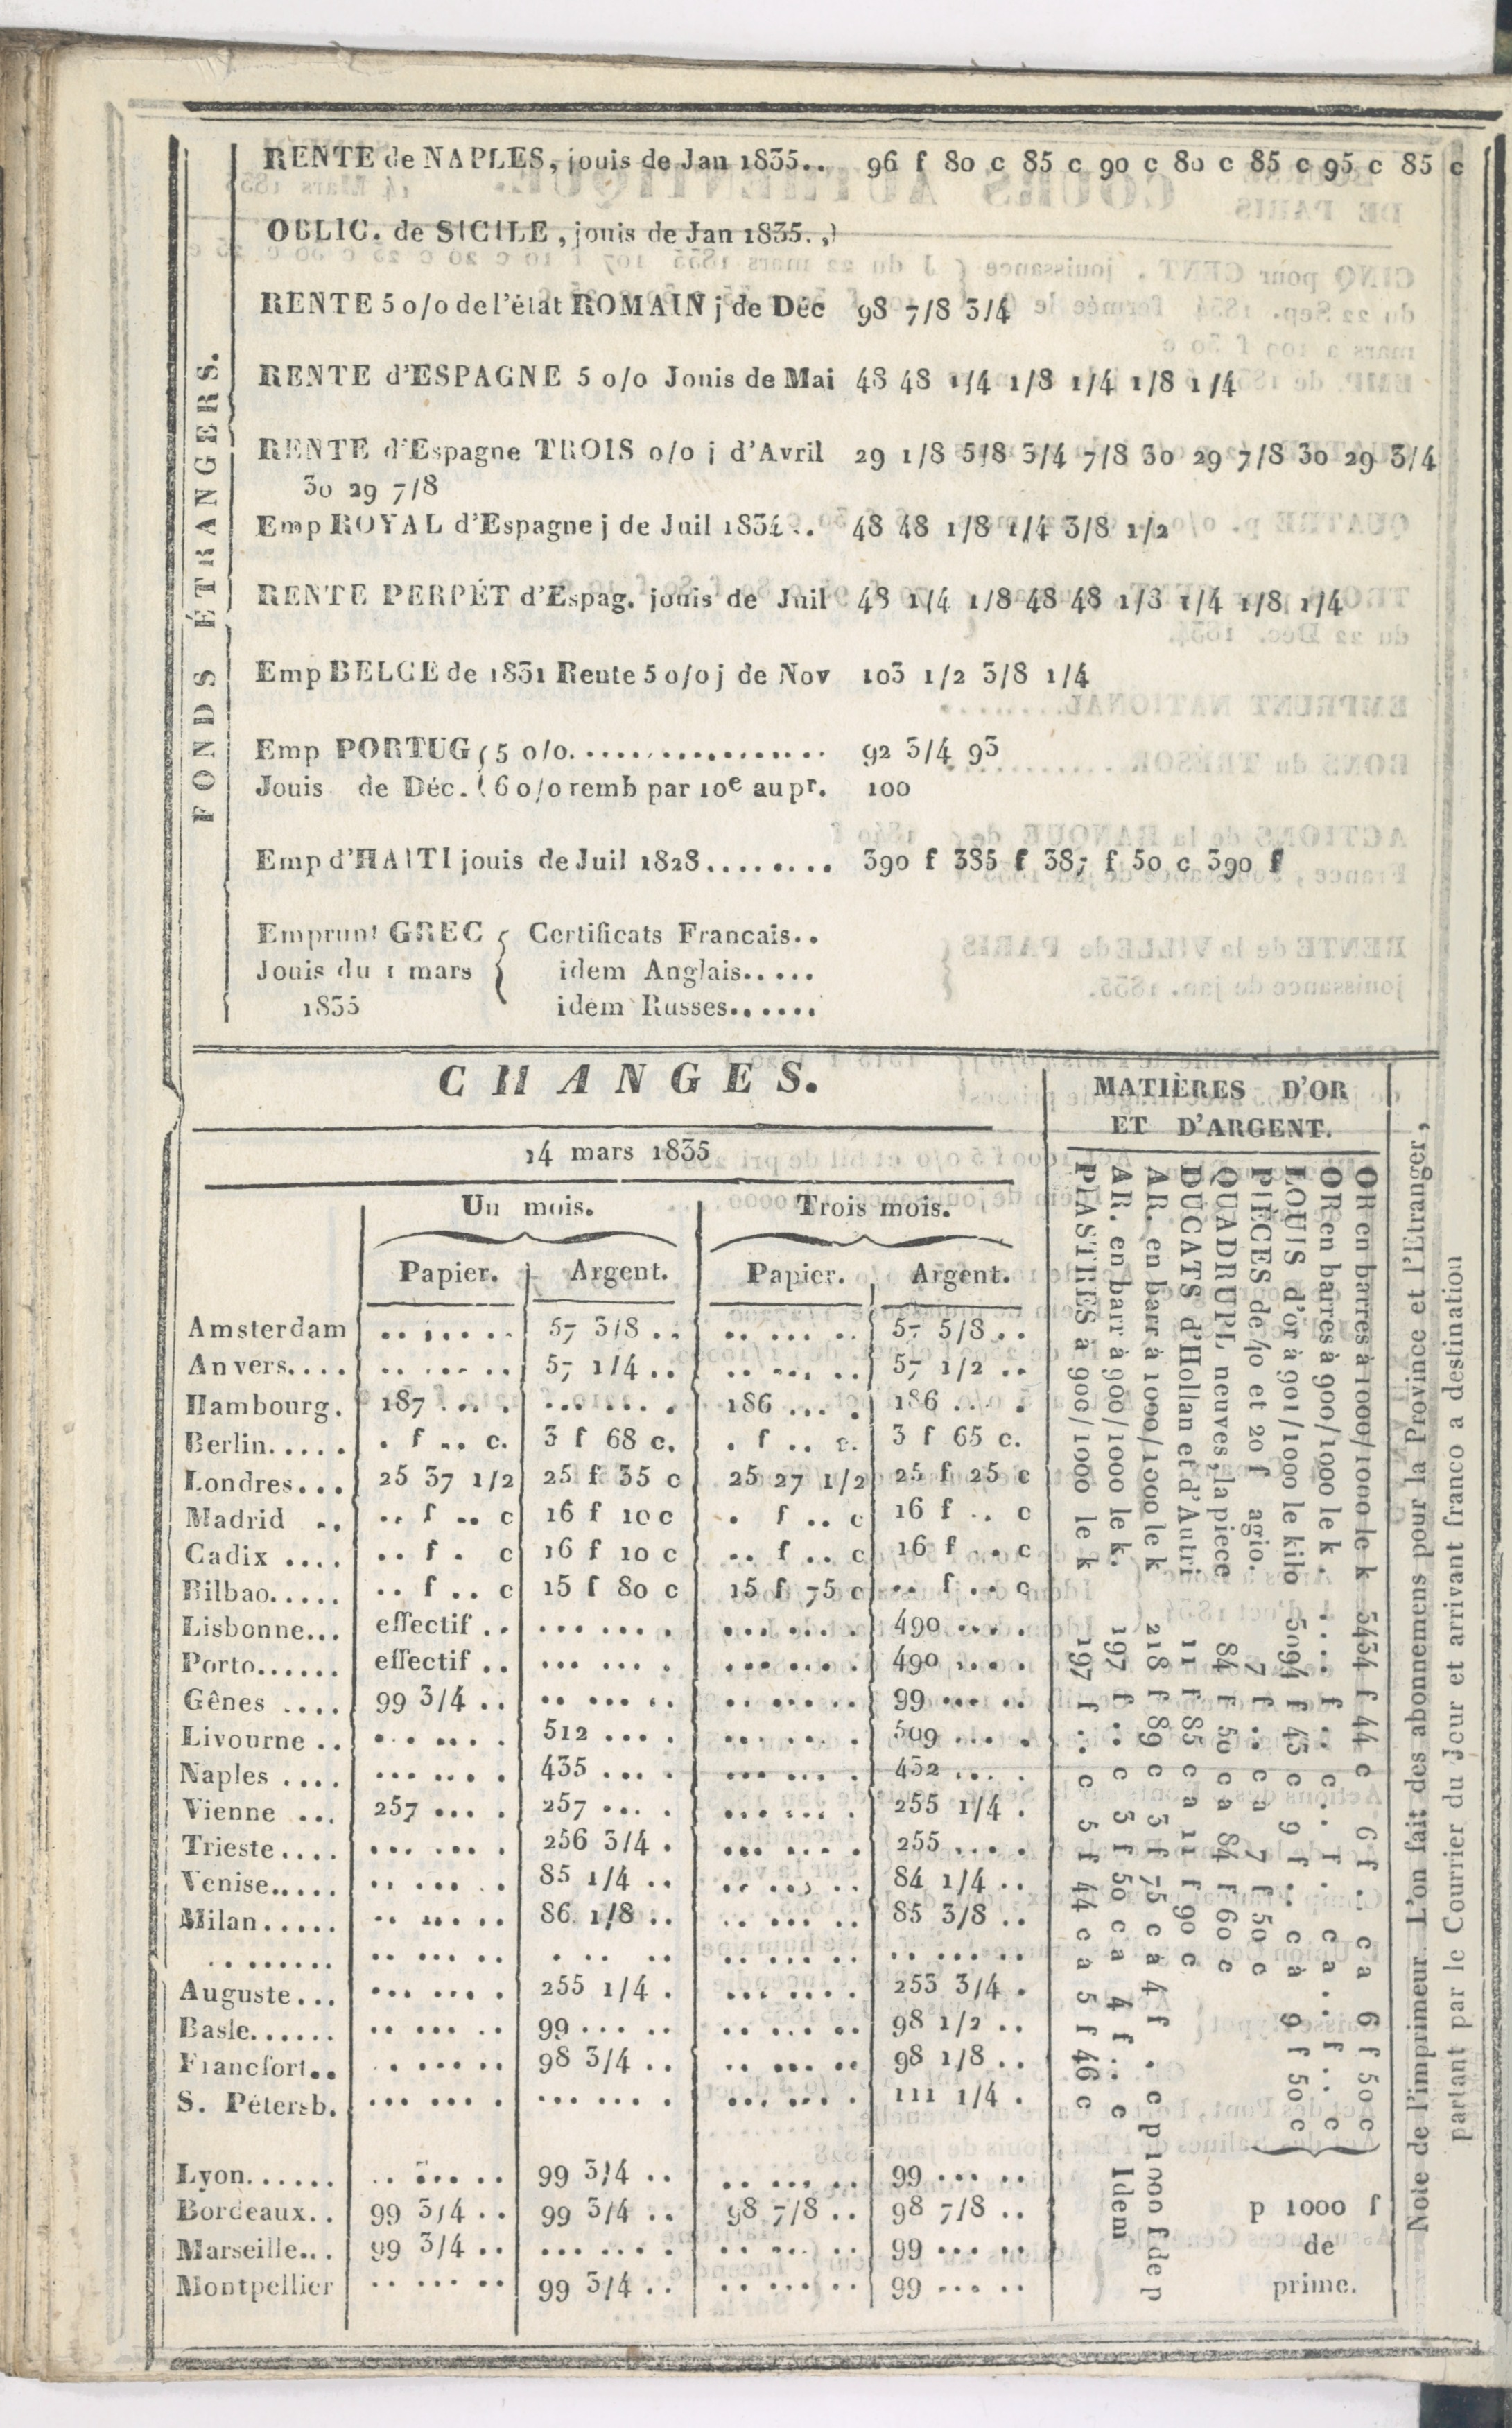 RENTE de NAPLES, jouis de Jan 1835.. 96 f 80 c 85 c 90 c 80 c 85 c 95 c 85 c
OBLIG. de SICILE, jouis de Jan 1835.
RENTE 5 o/o de l'état ROMAIN j de Déc 98 7/8 3/4
RENTE d'ESPAGNE 5 o/o Jouis de Mai 48 48 1/4 1/8 1/4 1/8 1/4
RENTE d'Espagne TROIS o/o j d'Avril 29 1/8 5/8 3/4 7/8 30 29 7/8 30 29 3/4
30 29 7/8
Emp ROYAL d'Espagne j de Juil 1834.. 48 48 1/8 1/4 3/8 1/2
RENTE PERPÉT d'Espag. jouis de Juil 48 1/4 1/8 48 48 1/8 1/4 1/8 1/4
Emp BELGE de 1831 Rente 5 o/o j de Nov 103 1/2 3/8 1/4
Emp PORTUG ( 5 o/o. ................ 92 3/4 93
Jouis de Déc. ( 6 o/o remb par 10e au pr. 100
Emp d'HAITI jouis de Juil 1828........ 390 f 385 f 387 f 50 c 390 f
Emprunt GREC { Certificats Francais..
Jouis du 1 mars idem Anglais.....
1835 idem Russes......
FONDS ÉTRANGERS.
CHANGES.
14 mars 1835
Un mois. Trois mois.
Papier. Argent. Papier. Argent.
Amsterdam ....... 57 3/8 .. ....... 57 5/8 ..
Anvers.... ....... 57 1/4 .. ....... 57 1/2 ..
Hambourg. 187 .... ....... 186 .... 186 ....
Berlin..... . f .. c. 3 f 68 c. . f .. c. 3 f 65 c.
Londres... 25 37 1/2 25 f 35 c 25 27 1/2 25 f 25 c
Madrid .. .. f .. c 16 f 10 c . f .. c 16 f .. c
Cadix .... .. f . c 16 f 10 c .. f .. c 16 f .. c
Bilbao..... .. f .. c 15 f 80 c 15 f 75 c .. f .. c
Lisbonne... effectif .. ....... ....... 490 ....
Porto...... effectif .. ....... ....... 490 ....
Gênes .... 99 3/4 .. ....... ....... 99 .....
Livourne .. ....... 512 .... ....... 509 ....
Naples .... ....... 435 .... ....... 432 ....
Vienne ... 257 .... 257 .... ....... 255 1/4 .
Trieste.... ....... 256 3/4 . ....... 255 ....
Venise..... ....... 85 1/4 .. ....... 84 1/4 ..
Milan..... ....... 86 1/8 .. ....... 85 3/8 ..
........ ....... ..... ....... .......
Auguste... ....... 255 1/4 . ....... 253 3/4 .
Basle...... ....... 99 ..... ....... 98 1/2 ..
Francfort.. ....... 98 3/4 .. ....... 98 1/8 ..
S. Pétersb. ....... ....... ....... 111 1/4 .
Lyon...... ....... 99 3/4 .. ....... 99 .....
Bordeaux.. 99 3/4 .. 99 3/4 .. 98 7/8 .. 98 7/8 ..
Marseille... 99 3/4 .. ....... ....... 99 .....
Montpellier ....... 99 3/4 .. ....... 99 .....
MATIÈRES D'OR
ET D'ARGENT.
OR en barres à 1000/1000 le k 3434 f 44 c 6 f . c a 6 f 50 c
OR en barres à 900/1000 le k . .... f .. c .. f . c a .. f .. c
LOUIS d'or à 901/1000 le kilo 3094 f 43 c 9 f . c à 9 f 50 c
PIÈCES de 40 et 20 f agio. 7 f .. c a 7 f 50 c
QUADRUPL neuves, la piece 84 f 50 c a 84 f 60 c
DUCATS d'Hollan et d'Autri 11 f 85 c a 11 f 90 c
AR. en barr à 1000/1000 le k 218 f 89 c 3 f 75 c à 4 f . c p 1000 f de p
AR. en barr à 900/1000 le k. 197 f .. c 3 f 50 c a 4 f .. c Idem
PIASTRES à 900/1000 le k 197 f .. c 5 f 44 c a 5 f 46 c
p 1000 f
de
prime.
Note de l'imprimeur. L'on fait des abonnemens pour la Province et l'Etranger,
partant par le Courrier du Jour et arrivant franco a destination